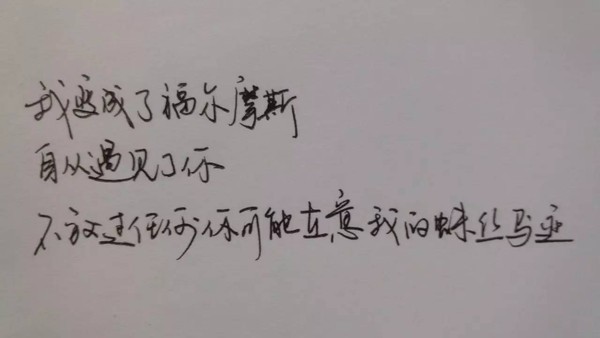 我变成了福尔摩斯
自从遇见了你
不放过任何你可能在意我的蛛丝马迹